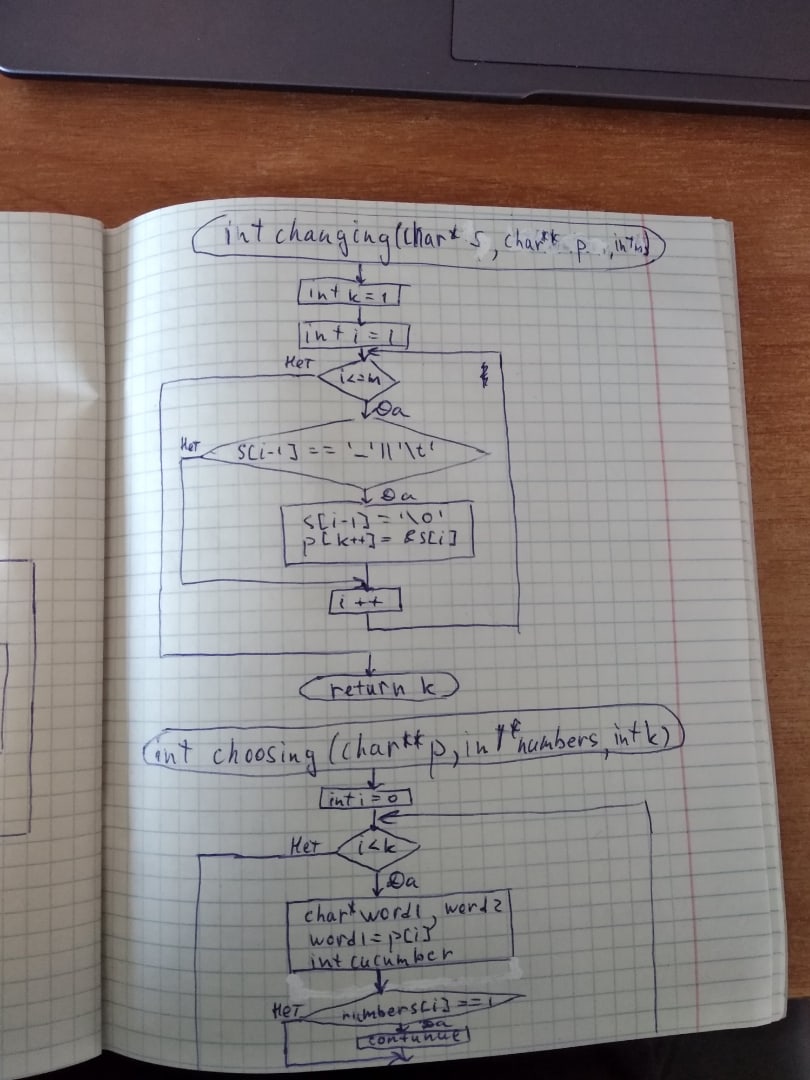 int changing(char* s, char** p, int n)
int k=1
int i=1
Нет
i<=n
Да
Нет
s[i-1] == '_'||'\t'
Да
s[i-1]='\0'
p[k++]= &s[i]
i++
return k
int choosing (char** p, int** numbers, int k)
int i=0
Нет
i<k
Да
char* word1, word2
word1=p[i]
int cucumber
Нет
numbers[i]==1
Да
continue